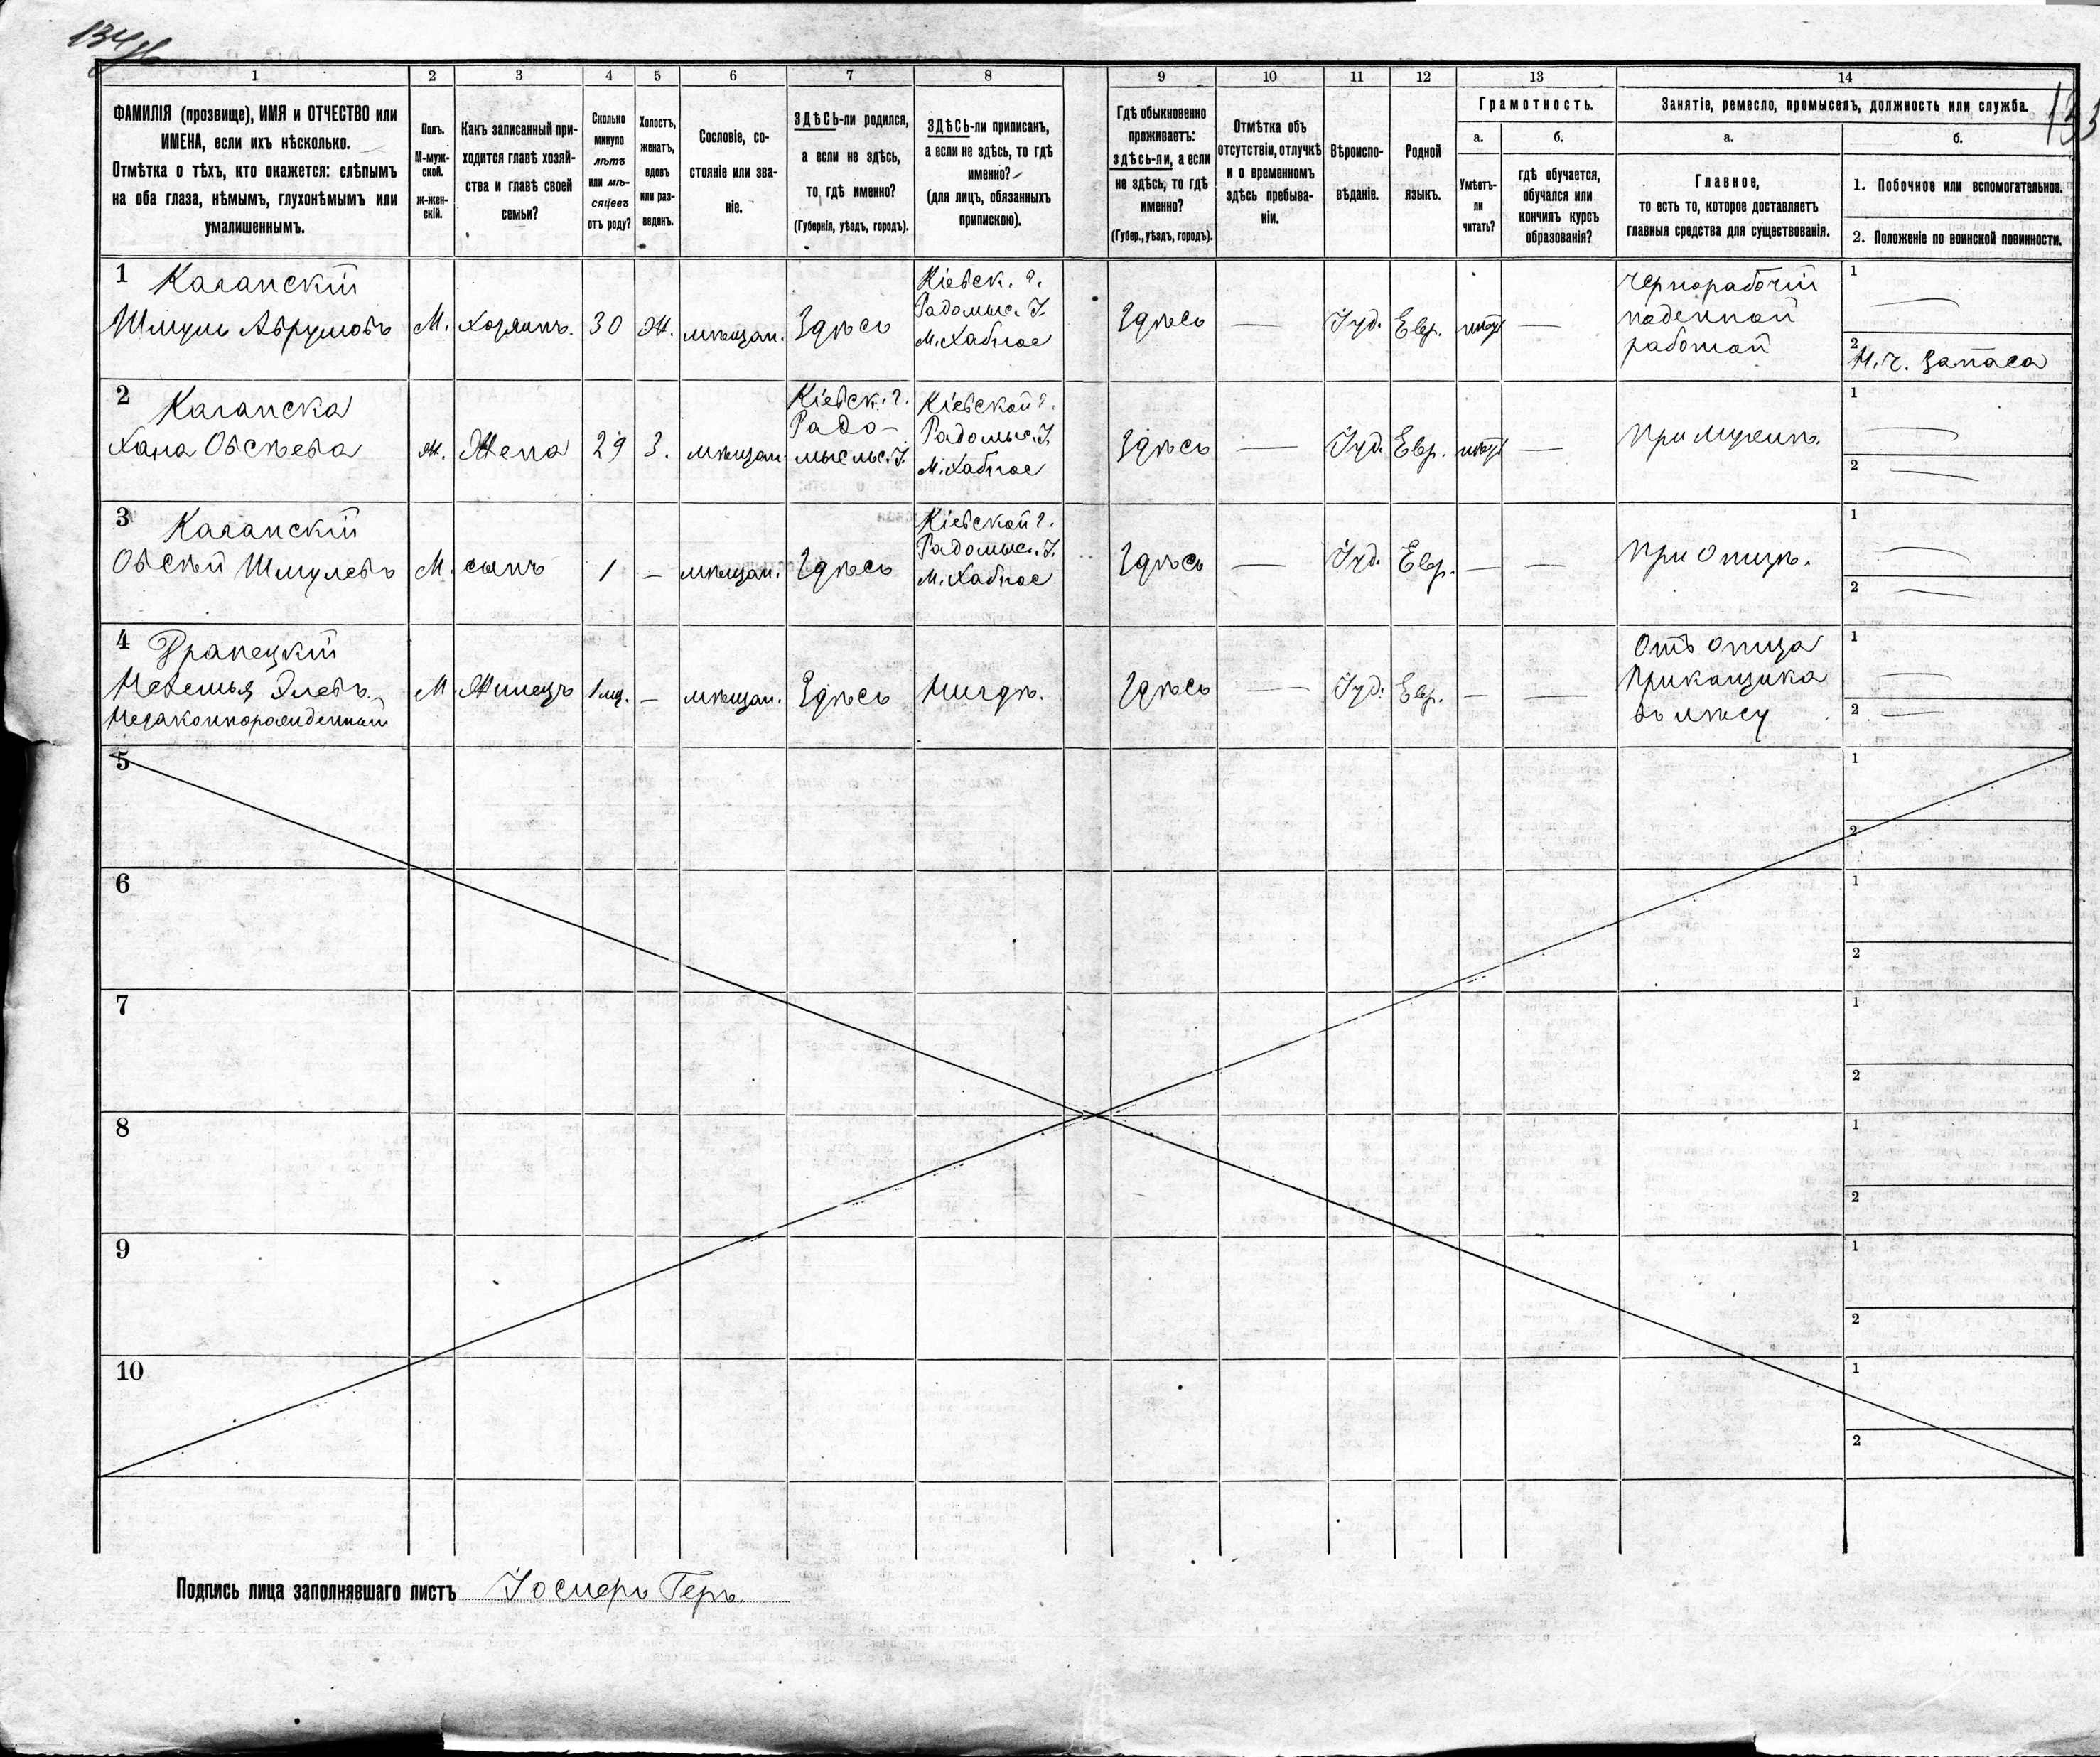 134
133
1 2 3 4 5 6 7 8 9 10 11 12 13 14
ФАМИЛІЯ (прозвище), ИМЯ и ОТЧЕСТВО или
ИМЕНА, если ихъ нѣсколько.
Отмѣтка о тѣхъ, кто окажется: слѣпымъ
на оба глаза, нѣмымъ, глухонѣмымъ или
умалишеннымъ.
Полъ.
М-муж-
ской.
ж-жен-
скій.
Какъ записанный при-
ходится главѣ хозяй-
ства и главѣ своей
семьи?
Сколько
минуло
лѣтъ
или мѣ-
сяцевъ
отъ роду?
Холостъ,
женатъ,
вдовъ
или раз-
веденъ.
Сословіе, со-
стояніе или зва-
ніе.
ЗДѢСЬ-ли родился,
а если не здѣсь,
то, гдѣ именно?
(Губернія, уѣздъ, городъ).
ЗДѢСЬ-ли приписанъ,
а если не здѣсь, то гдѣ
именно?
(для лицъ, обязанныхъ
припискою).
Гдѣ обыкновенно
проживаетъ:
здѣсь-ли, а если
не здѣсь, то гдѣ
именно?
(Губер., уѣздъ, городъ).
Отмѣтка объ
отсутствіи, отлучкѣ
и о временномъ
здѣсь пребыва-
ніи.
Вѣроиспо-
вѣданіе.
Родной
языкъ.
Грамотность.
а.
Умѣетъ-
ли
читать?
б.
гдѣ обучается,
обучался или
кончилъ курсъ
образованія?
Занятіе, ремесло, промыселъ, должность или служба.
а.
Главное,
то есть то, которое доставляетъ
главныя средства для существованія.
б.
1. Побочное или вспомогательное.
2. Положеніе по воинской повинности.
1 Каганскій
Шмуль Аврумовъ
М.
Хозяинъ.
30
Ж.
мѣщан.
Здѣсь
Кіевск. г.
Радомыс. У.
М. Хабное
Здѣсь
—
Іуд.
Евр.
нѣтъ
—
Чернорабочій
поденной
работой
1 —
2 Н. ч. запаса
2 Каганска
Хана Овсѣева
ж.
Жена
29
З.
мѣщан.
Кіевск. г.
Радо-
мысльс. У.
Кіевской г.
Радомыс. У.
М. Хабное
Здѣсь
—
Іуд.
Евр.
нѣтъ
—
При мужѣ.
1 —
2 —
3 Каганскій
Овсѣй Шмулевъ
М.
сынъ
1
—
мѣщан.
Здѣсь
Кіевской г.
Радомыс. У.
М. Хабное
Здѣсь
—
Іуд.
Евр.
—
—
При отцѣ.
1 —
2 —
4
Незаконнорожденный
М
Жилецъ
1 мц.
—
мѣщан.
Здѣсь
Нигдѣ.
Здѣсь
—
Іуд.
Евр.
—
—
Отъ отца
Прикащика
въ лѣсу
1 —
2 —
5
1
2
6
1
2
7
1
2
8
1
2
9
1
2
10
1
2
Подпись лица заполнявшаго листъ Іосиеръ Геръ